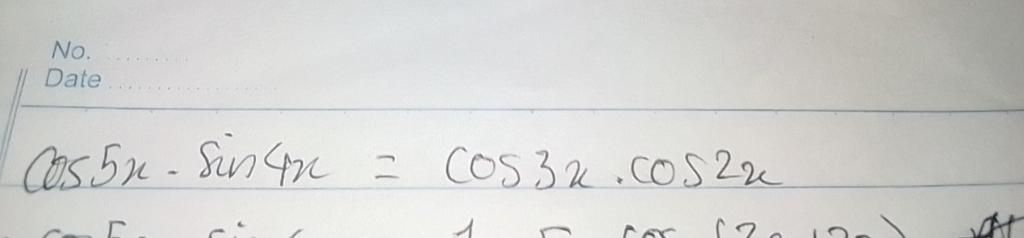 No. ..........
Date ....................
Cos5x . Sin4x = cos3x . cos2x